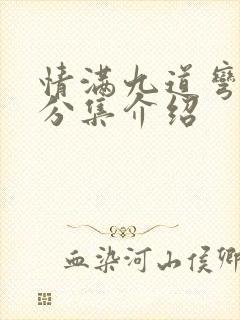 情满九道弯
分集介绍
血染河山侯卿